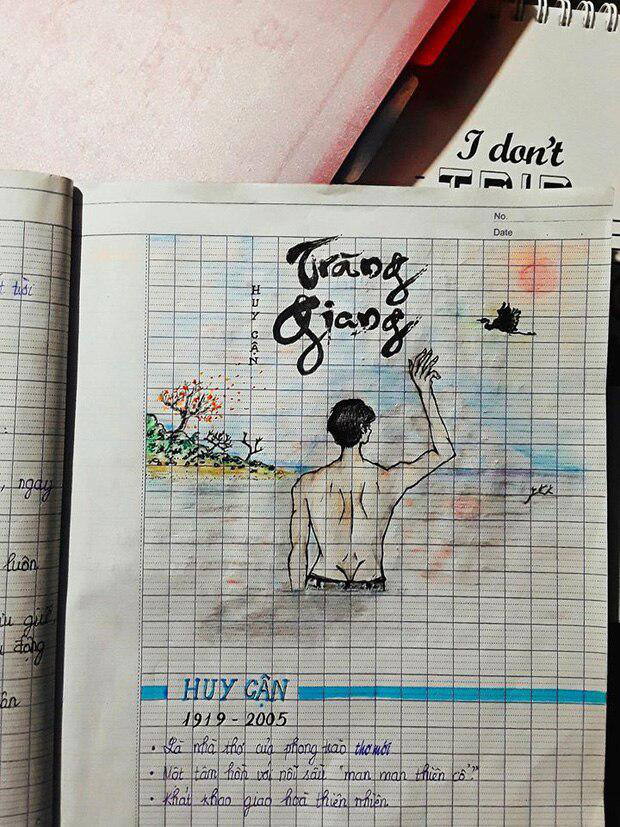 I don't
TRIP
No.
Date
Tràng
Giang
HUY CẬN
t tươi
, ngày
luôn
HUY CẬN
1919 - 2005
• Là nhà thơ của phong trào thơ mới
• Một tâm hồn với nỗi sầu "man man thiên cổ"
• Khát khao giao hoà thiên nhiên.
động